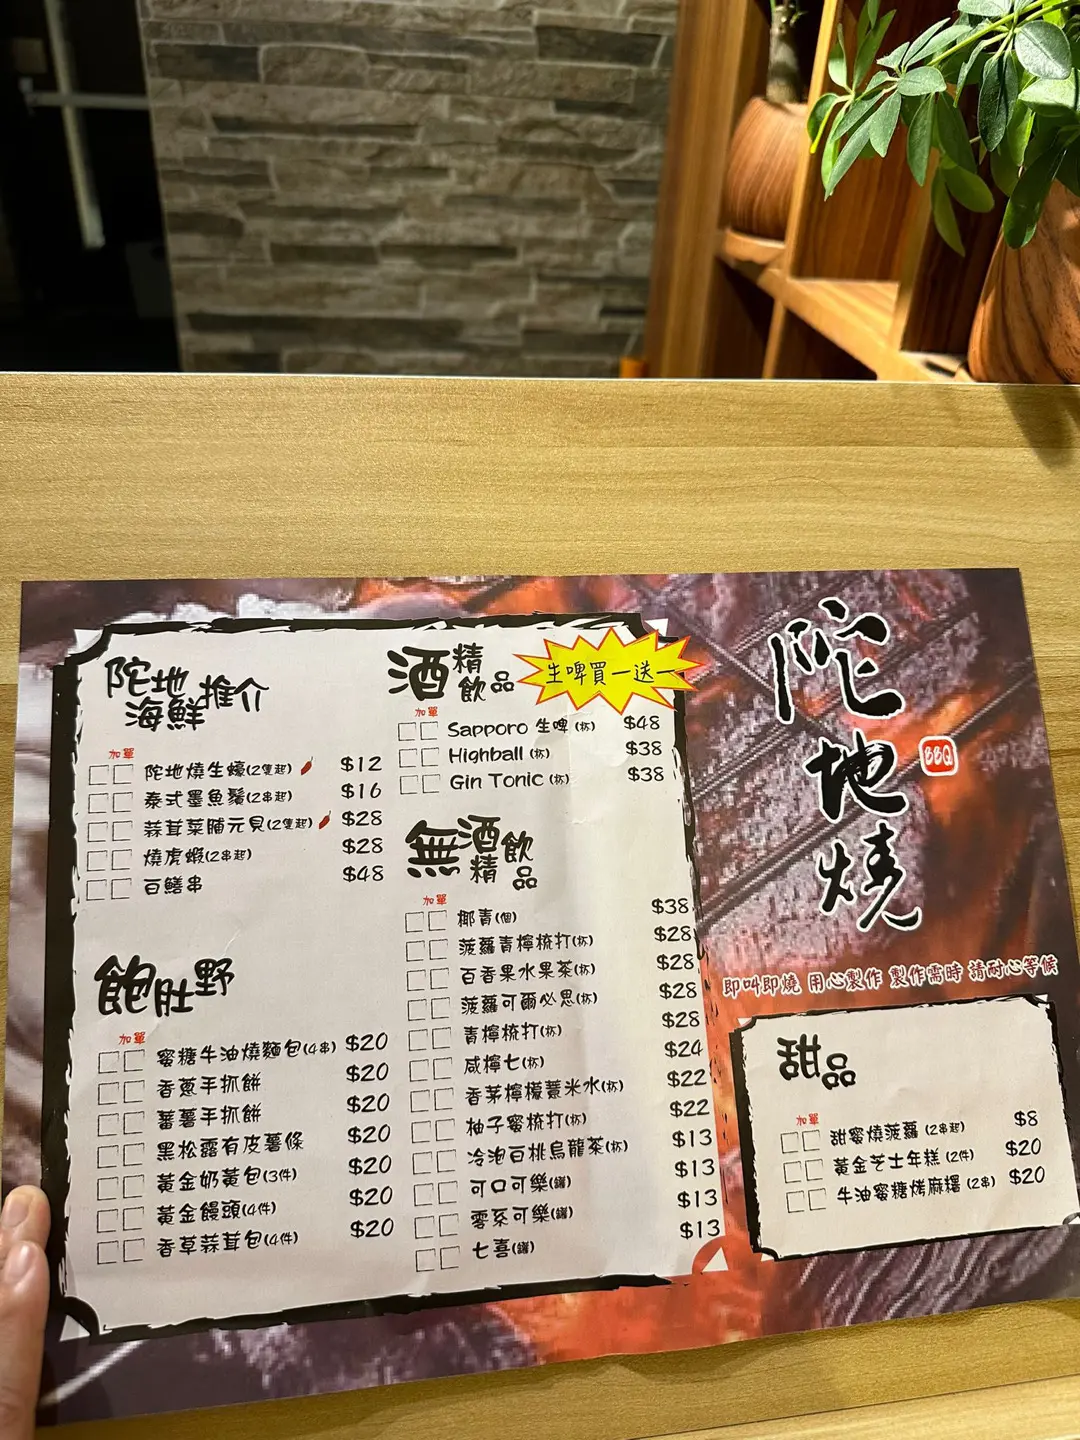 陀地
海鮮推介
加單
陀地燒生蠔(2隻起) $12
泰式墨魚鬚(2串起) $16
蒜茸菜脯元貝(2隻起) $28
燒虎蝦(2串起) $28
百鱔串 $48
飽肚野
加單
蜜糖牛油燒麵包(4串) $20
香蔥手抓餅 $20
蕃薯手抓餅 $20
黑松露有皮薯條 $20
黃金奶黃包(3件) $20
黃金饅頭(4件) $20
香草蒜茸包(4件) $20
酒精飲品
生啤買一送一
加單
Sapporo 生啤(杯) $48
Highball (杯) $38
Gin Tonic (杯) $38
無酒精飲品
加單
椰青(個) $38
菠蘿青檸梳打(杯) $28
百香果水果茶(杯) $28
菠蘿可爾必思(杯) $28
青檸梳打(杯) $28
咸檸七(杯) $24
香茅檸檬薏米水(杯) $22
柚子蜜梳打(杯) $22
冷泡白桃烏龍茶(杯) $13
可口可樂(罐) $13
零系可樂(罐) $13
七喜(罐) $13
陀地燒
BBQ
即叫即燒 用心製作 製作需時 請耐心等候
甜品
加單
甜蜜燒菠蘿(2串起) $8
黃金芝士年糕(2件) $20
牛油蜜糖烤麻糬(2串) $20